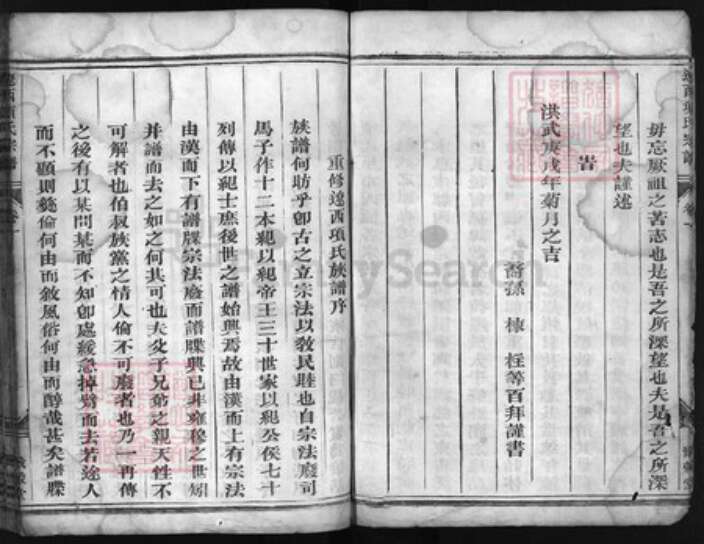 毋忘厥祖之著志也是吾之所深望也夫是吾之所深
望也夫謹述
旹
洪武庚戌年菊月之吉
裔孫 棟 桎等百拜謹書
重修遼西項氏族譜序
族譜何昉乎卽古之立宗法以敎民睦也自宗法廢司
馬子作十二本紀以紀帝王三十世家以紀公侯七十
列傳以紀士庶後世之譜始興焉故由漢而上有宗法
由漢而下有譜牒宗法廢而譜牒興已非雍穆之世矧
并譜而去之如之何其可也夫父子兄弟之親天性不
可解者也伯叔族黨之情人倫不可廢者也乃一再傳
之後有以某問某而不知卽處緩急掉臂而去若途人
而不顧則彝倫何由而敘風俗何由而醇哉甚矣譜牒
FamilySearch